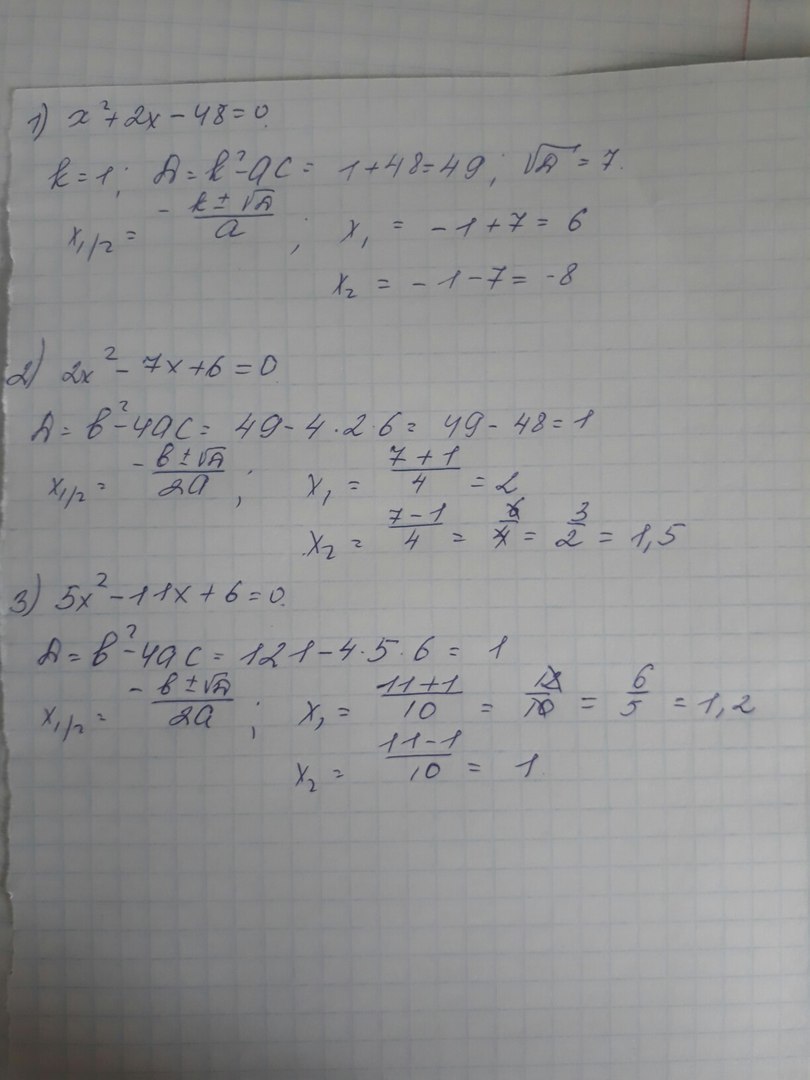 1) x² + 2x - 48 = 0.
k = 1; D = k² - ac = 1 + 48 = 49; √D = 7.
x₁/₂ = -k ± √D / a ; x₁ = -1 + 7 = 6
x₂ = -1 - 7 = -8
2) 2x² - 7x + 6 = 0
D = b² - 4ac = 49 - 4·2·6 = 49 - 48 = 1
x₁/₂ = -b ± √D / 2a ; x₁ = 7 + 1 / 4 = 2
x₂ = 7 - 1 / 4 = 6/4 = 3/2 = 1,5
3) 5x² - 11x + 6 = 0.
D = b² - 4ac = 121 - 4·5·6 = 1
x₁/₂ = -b ± √D / 2a ; x₁ = 11 + 1 / 10 = 12/10 = 6/5 = 1,2
x₂ = 11 - 1 / 10 = 1